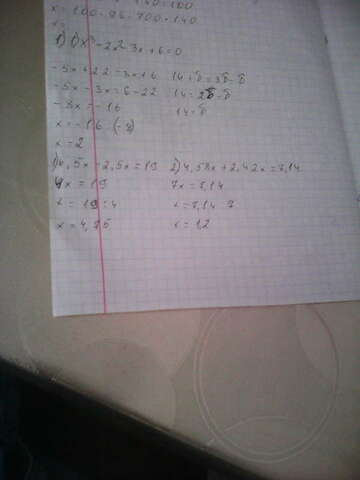 x=100·96:700·140
x=
1) 1) x³-2x²-3x+6=0
-5x+22=3x+6 14+б=3б-б
-5x-3x=6-22 14=2б-б
-8x=-16 14=б
x=-16:(-8)
x=2
1) 6,5x-2,5x=19 2) 4,58x+2,42x=7,14
4x=19 7x=7,14
x=19:4 x=7,14 7
x=4,75 x=1,2